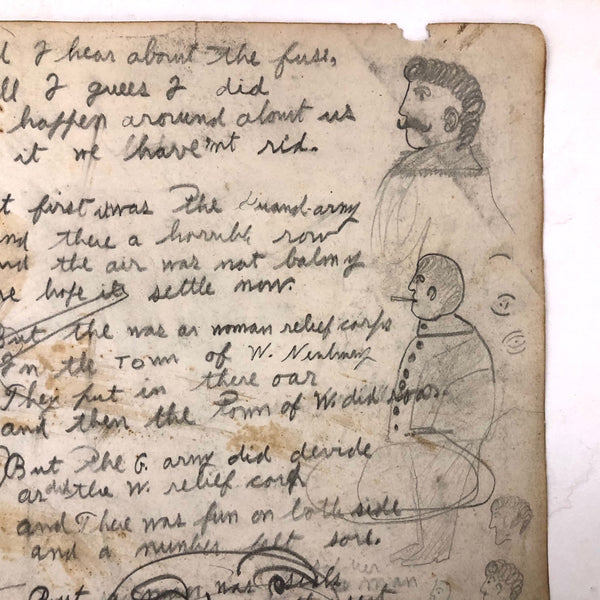 I hear about the fuss,
ll I guees I did
happen arround about us
it we have'nt rid.
t first was the Grand-army
nd there a horrible row
nd the air was not balmy
re hope it settle now.
But the was ar woman relief corps
In the Town of W. Newbury
They put in there oar
and then the Town of W. did roar.
But the G. army did devide
as did the W. relief corp
and There was fun on both side
and a number felt sore.
But a man was
man